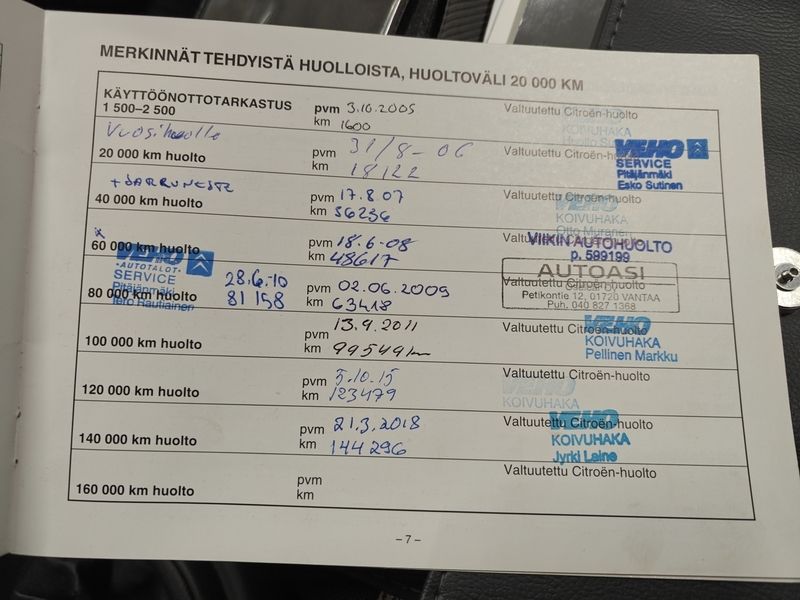 MERKINNÄT TEHDYISTÄ HUOLLOISTA, HUOLTOVÄLI 20 000 KM
KÄYTTÖÖNOTTOTARKASTUS
1 500–2 500
pvm 3.10.2005
km 1600
Valtuutettu Citroën-huolto
KOIVUHAKA
Vuosihuolto
20 000 km huolto
pvm 31/8-06
km 18122
Valtuutettu Citroën-huolto
VEHO
SERVICE
Pitäjänmäki
Esko Sutinen
+ JARRUNESTE
40 000 km huolto
pvm 17.8.07
km 36236
Valtuutettu Citroën-huolto
VEHO
KOIVUHAKA
Otto Muranen
x
60 000 km huolto
pvm 18.6-08
km 48617
Valtuutettu Citroën-huolto
VIIKIN AUTOHUOLTO
p. 599199
VEHO
AUTOTALOT
SERVICE
Pitäjänmäki
Tero Rautiainen
28.6.-10
81 158
80 000 km huolto
pvm 02.06.2009
km 63418
Valtuutettu Citroën-huolto
AUTOASI
Petikontie 12, 01720 VANTAA
Puh. 040 827 1368
100 000 km huolto
pvm 13.9.2011
km 99549km
Valtuutettu Citroën-huolto
VEHO
KOIVUHAKA
Pellinen Markku
120 000 km huolto
pvm 5.10.15
km 123479
Valtuutettu Citroën-huolto
VEHO
KOIVUHAKA
140 000 km huolto
pvm 21.3.2018
km 144296
Valtuutettu Citroën-huolto
VEHO
KOIVUHAKA
Jyrki Laine
160 000 km huolto
pvm
km
Valtuutettu Citroën-huolto
– 7 –